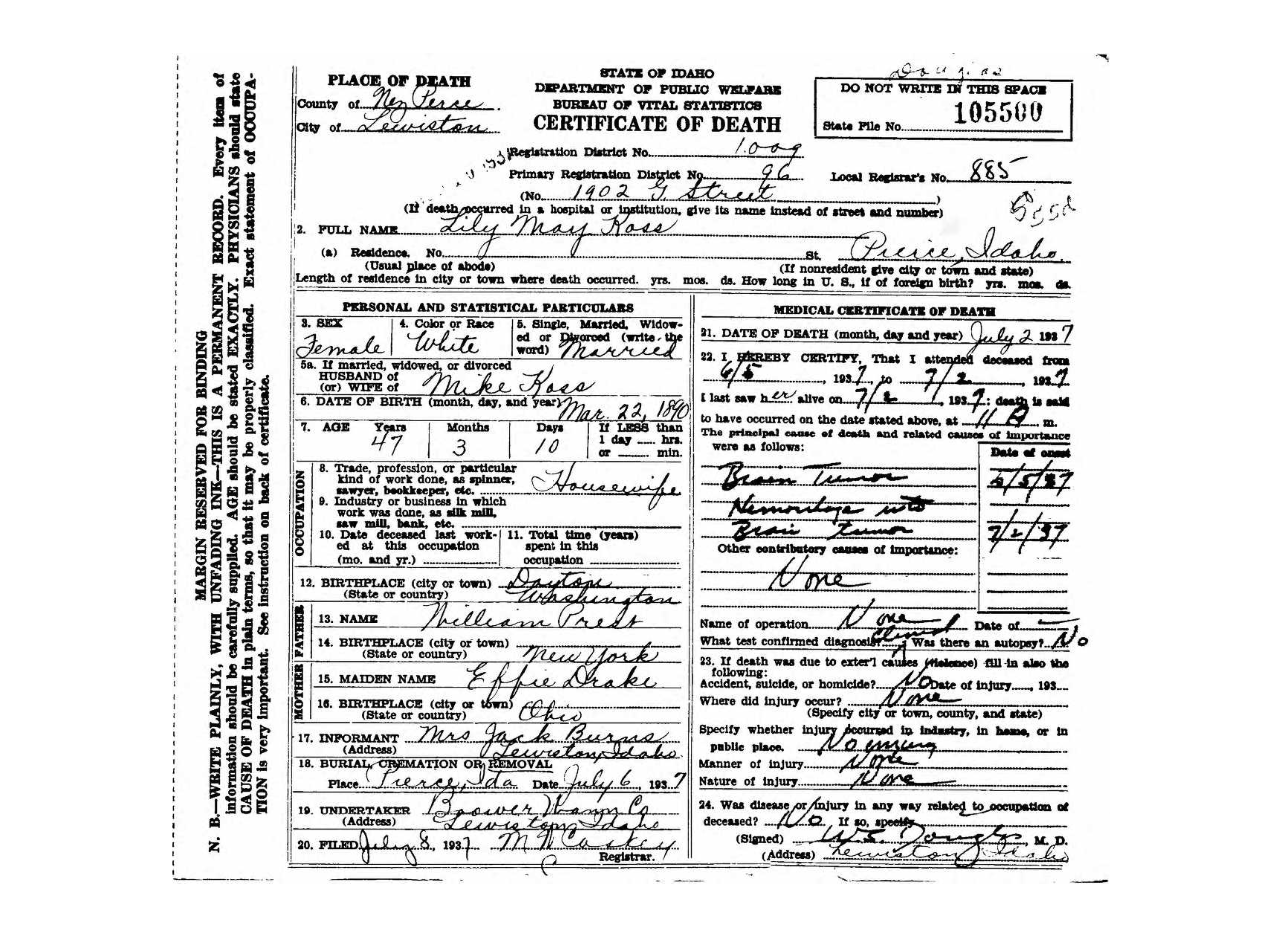 N. B.—WRITE PLAINLY, WITH UNFADING INK—THIS IS A PERMANENT RECORD. Every item of
information should be carefully supplied. AGE should be stated EXACTLY. PHYSICIANS should state
CAUSE OF DEATH in plain terms, so that it may be properly classified. Exact statement of OCCUPA-
TION is very important. See instruction on back of certificate.
MARGIN RESERVED FOR BINDING
PLACE OF DEATH
County of Nez Perce
City of Lewiston
STATE OF IDAHO
DEPARTMENT OF PUBLIC WELFARE
BUREAU OF VITAL STATISTICS
CERTIFICATE OF DEATH
Douglas
DO NOT WRITE IN THIS SPACE
State File No. 105500
Registration District No. 1009
Primary Registration District No. 96
Local Registrar's No. 885
(No. 1902 G Street)
(If death occurred in a hospital or institution, give its name instead of street and number)
2. FULL NAME Lily May Koss
(a) Residence. No. St. Pierce, Idaho
(Usual place of abode) (If nonresident give city or town and state)
Length of residence in city or town where death occurred. yrs. mos. ds. How long in U. S., if of foreign birth? yrs. mos. ds.
PERSONAL AND STATISTICAL PARTICULARS
3. SEX Female
4. Color or Race White
5. Single, Married, Widow-
ed or Divorced (write the
word) Married
5a. If married, widowed, or divorced
HUSBAND of
(or) WIFE of Mike Koss
6. DATE OF BIRTH (month, day, and year) Mar. 22, 1890
7. AGE Years 47 Months 3 Days 10 If LESS than
1 day ..... hrs.
or ........ min.
OCCUPATION
8. Trade, profession, or particular
kind of work done, as spinner,
sawyer, bookkeeper, etc. Housewife
9. Industry or business in which
work was done, as silk mill,
saw mill, bank, etc.
10. Date deceased last work-
ed at this occupation
(mo. and yr.)
11. Total time (years)
spent in this
occupation
12. BIRTHPLACE (city or town) Dayton
(State or country) Washington
FATHER
13. NAME William Prest
14. BIRTHPLACE (city or town)
(State or country) New York
MOTHER
15. MAIDEN NAME Effie Drake
16. BIRTHPLACE (city or town)
(State or country) Ohio
17. INFORMANT Mrs Jack Burns
(Address) Lewiston, Idaho
18. BURIAL, CREMATION OR REMOVAL
Place Pierce, Ida Date July 6, 1937
19. UNDERTAKER Brower Wann Co
(Address) Lewiston, Idaho
20. FILED July 8, 1937
Registrar.
MEDICAL CERTIFICATE OF DEATH
21. DATE OF DEATH (month, day and year) July 2 1937
22. I HEREBY CERTIFY, That I attended deceased from
6/5, 1937 to 7/2, 1937
I last saw her alive on 7/2, 1937: death is said
to have occurred on the date stated above, at 11 A m.
The principal cause of death and related causes of importance
were as follows: Date of onset
Brain Tumor 6/5/37
Hemorrhage into
Brain tumor 7/2/37
Other contributory causes of importance:
None
Name of operation None Date of —
What test confirmed diagnosis? Clinical Was there an autopsy? No
23. If death was due to exter'l causes (violence) fill in also the
following:
Accident, suicide, or homicide? No Date of injury......, 193....
Where did injury occur? None
(Specify city or town, county, and state)
Specify whether injury occurred in industry, in home, or in
public place. No injury
Manner of injury None
Nature of injury None
24. Was disease or injury in any way related to occupation of
deceased? No If so, specify
(Signed) W.S. Douglas, M. D.
(Address) Lewiston, Idaho